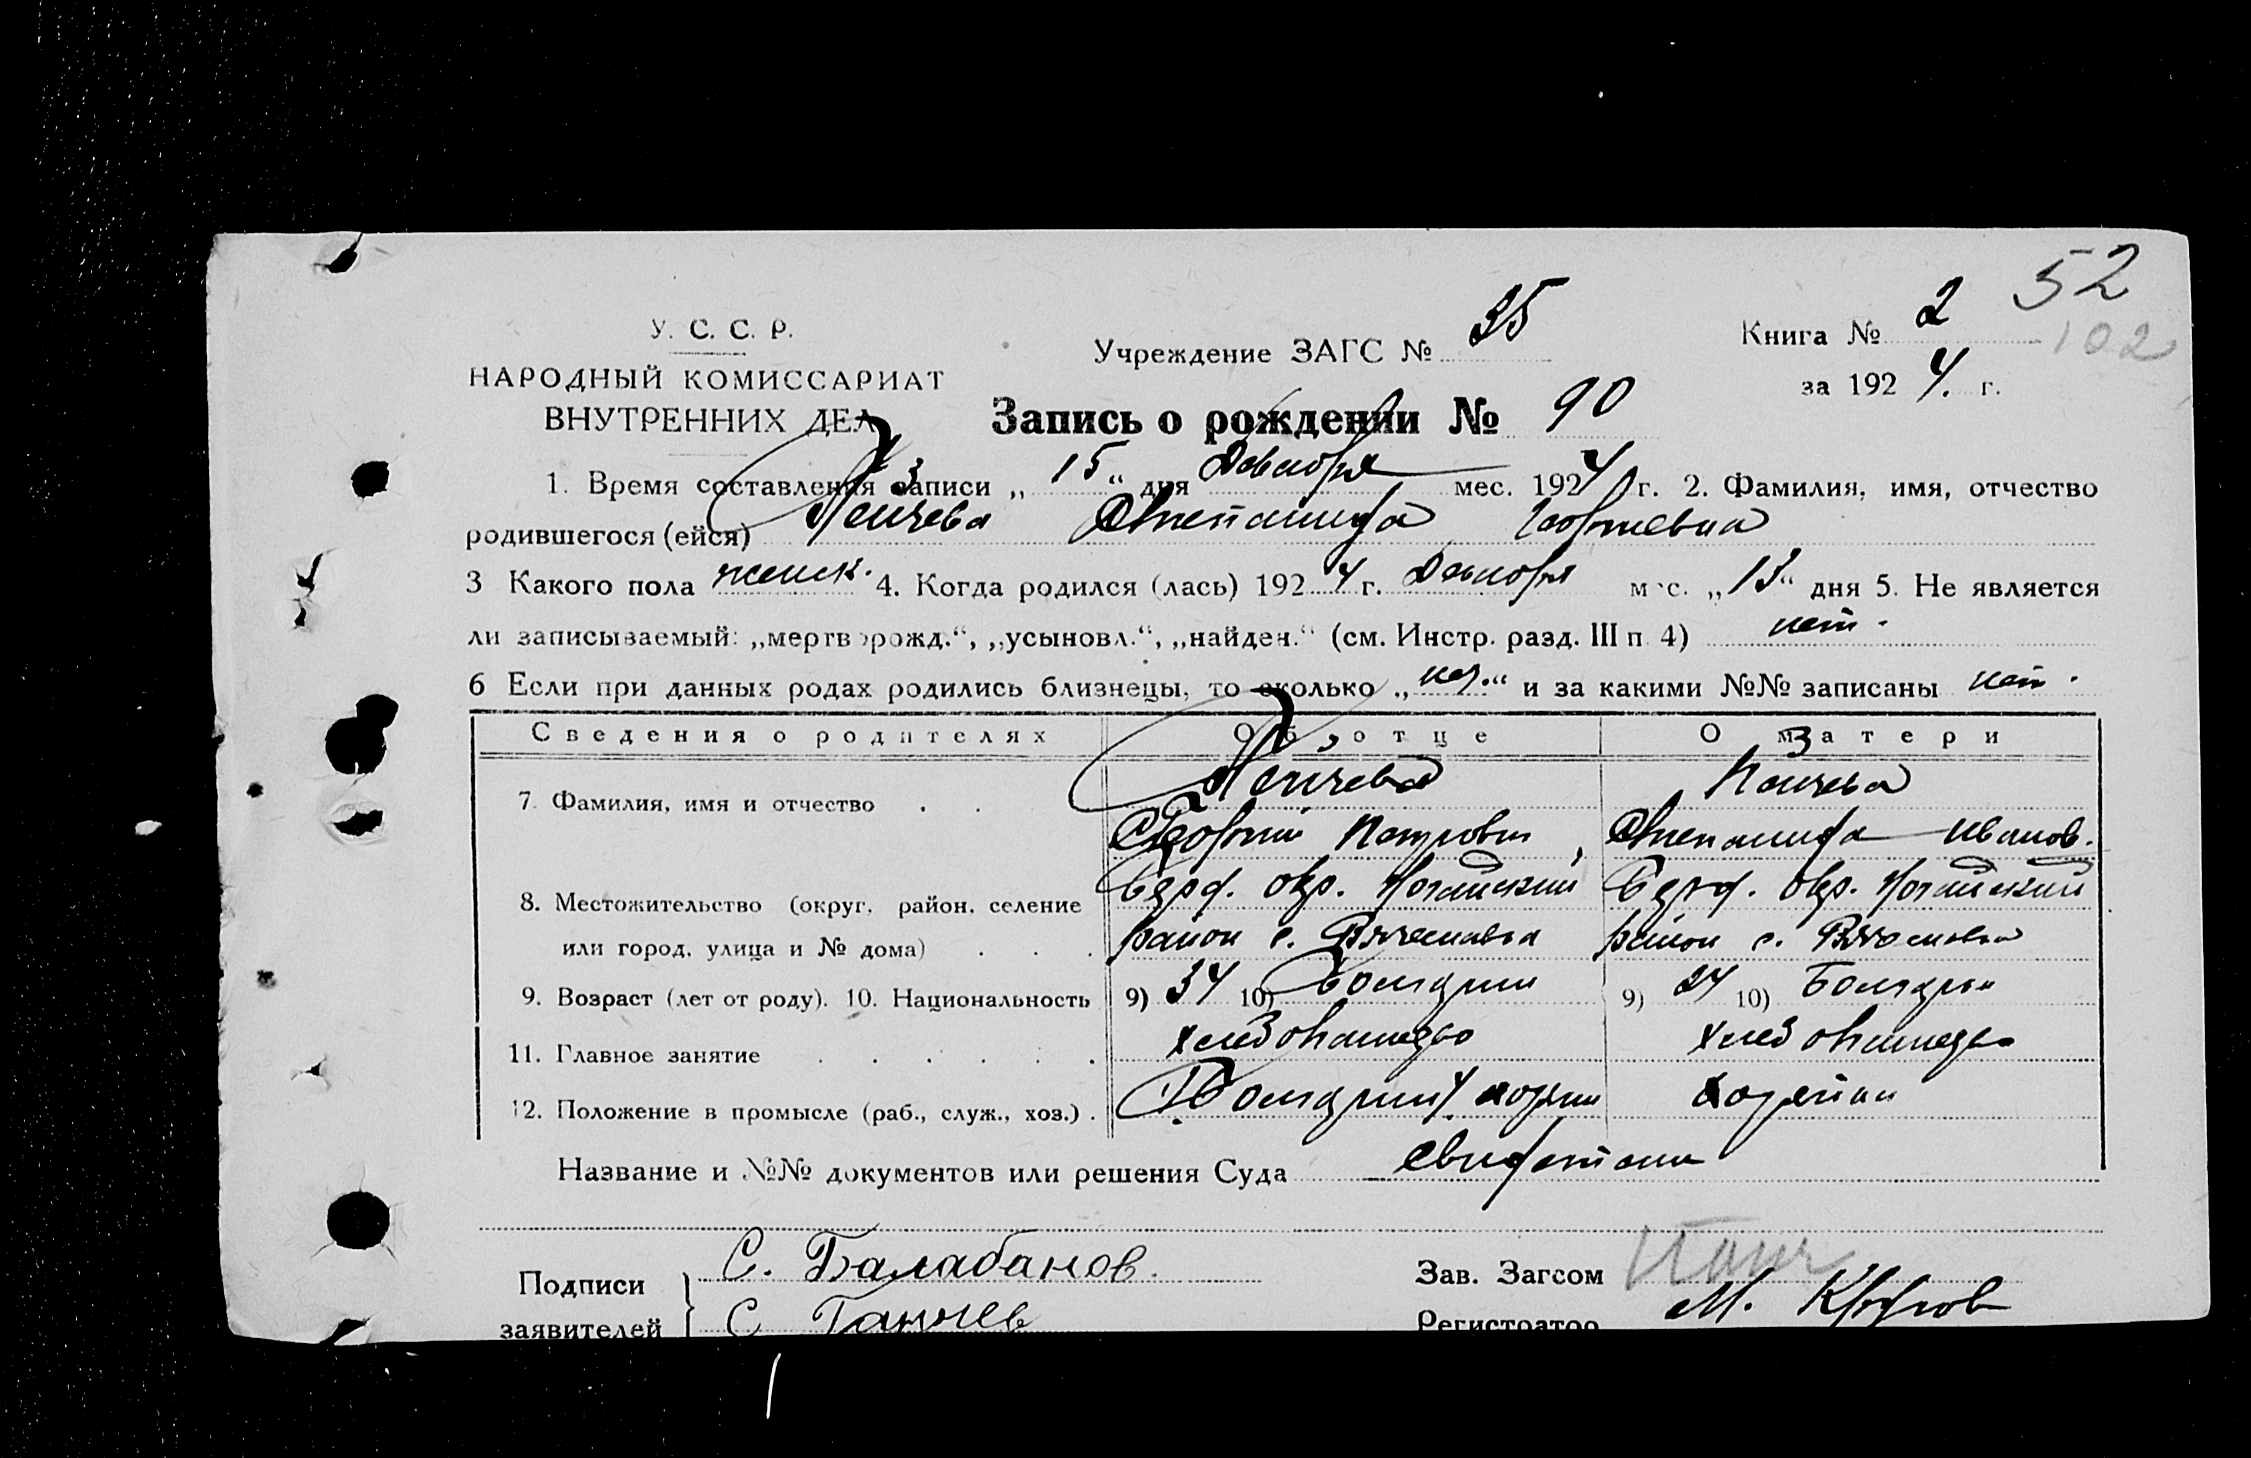 52
У. С. С. Р.
Учреждение ЗАГС № 35
Книга № 2
102
НАРОДНЫЙ КОМИССАРИАТ
за 1924. г.
ВНУТРЕННИХ ДЕЛ
Запись о рождении № 90
1. Время составления записи „15“ дня Декабря мес. 1924 г. 2. Фамилия, имя, отчество
родившегося (ейся) Степанида Георгиевна
3 Какого пола женск. 4. Когда родился (лась) 1924 г. Декабря мес. „13“ дня 5. Не является
ли записываемый: „мертворожд.“, „усыновл.“, „найден.“ (см. Инстр. разд. III п. 4) нет.
6 Если при данных родах родились близнецы, то сколько „нет.“ и за какими №№ записаны нет.
Сведения о родителях Об отце О матери
7. Фамилия, имя и отчество
Георгий Петрович Степанида Иванов.
8. Местожительство (округ, район, селение Бердф. окр. Ногайский Бердф. окр. Ногайский
или город, улица и № дома) район с. Вячеславка район с. Вячеславка
9. Возраст (лет от роду). 10. Национальность 9) 34 10) Болгарин 9) 24 10) Болгарка
11. Главное занятие хлебопашество хлебопашество
12. Положение в промысле (раб., служ., хоз.)
Название и №№ документов или решения Суда
Подписи С. Балабанов.
Зав. Загсом
заявителей С Ганчев
Регистратор М.